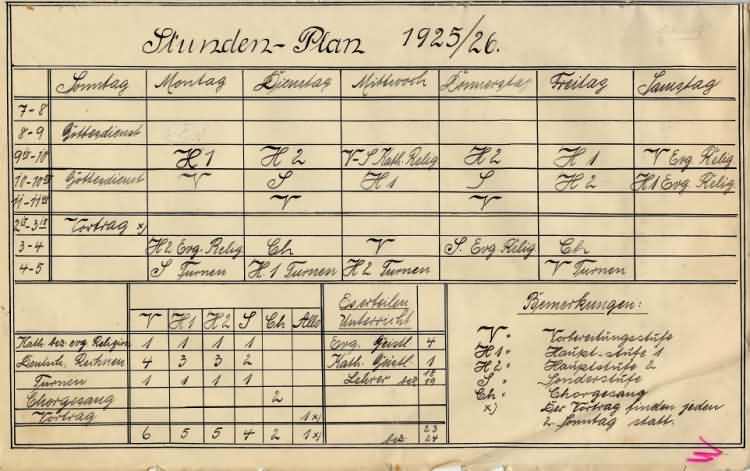 Stunden-Plan 1925/26.
Sonntag Montag Dienstag Mittwoch Donnerstag Freitag Samstag
7-8
8-9 Gottesdienst
9-10 H1 H2 V-S Kath. Relig H2 H1 V Evg Relig
10-10 Gottesdienst V S H1 S H2 H1 Evg Relig
11-11 V V
2-3 Vortrag x)
3-4 H2 Evg. Relig Ch V S. Evg Relig Ch
4-5 S Turnen H1 Turnen H2 Turnen V Turnen
V H1 H2 S Ch Alle
Kath. bez. evg. Religion 1 1 1 1
Deutsch, Rechnen 4 3 3 2
Turnen 1 1 1 1
Chorgesang 2
Vortrag 1x)
6 5 5 4 2 1x)
Es erteilen
Unterricht
Evg. Geistl 4
Kath. Geistl 1
Lehrer bez 18 19
bez 23 24
Bemerkungen:
V = Vorbereitungsstufe
H1 = Haupt-stufe 1
H2 = Hauptstufe 2
S = Sonderstufe
Ch = Chorgesang
x) Der Vortrag finden jeden
2. Sonntag statt.